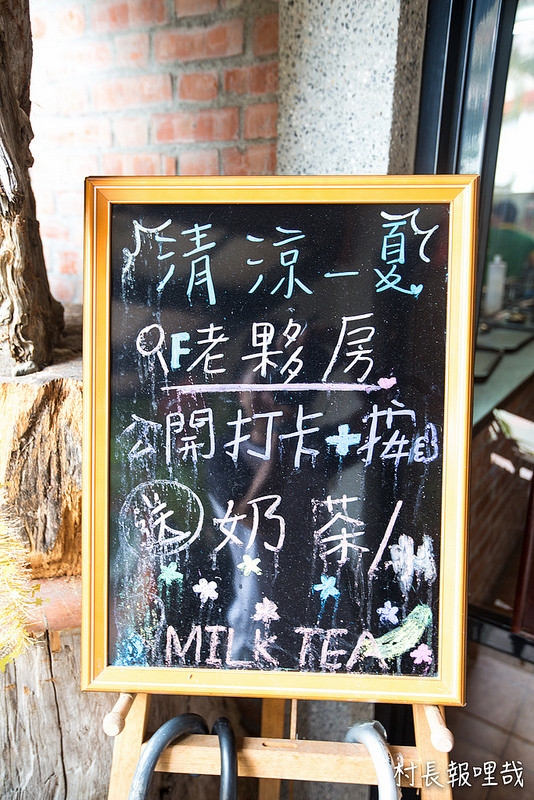 清涼一夏
F老夥房
公開打卡+按
送奶茶/
MILK TEA
村長報哩哉